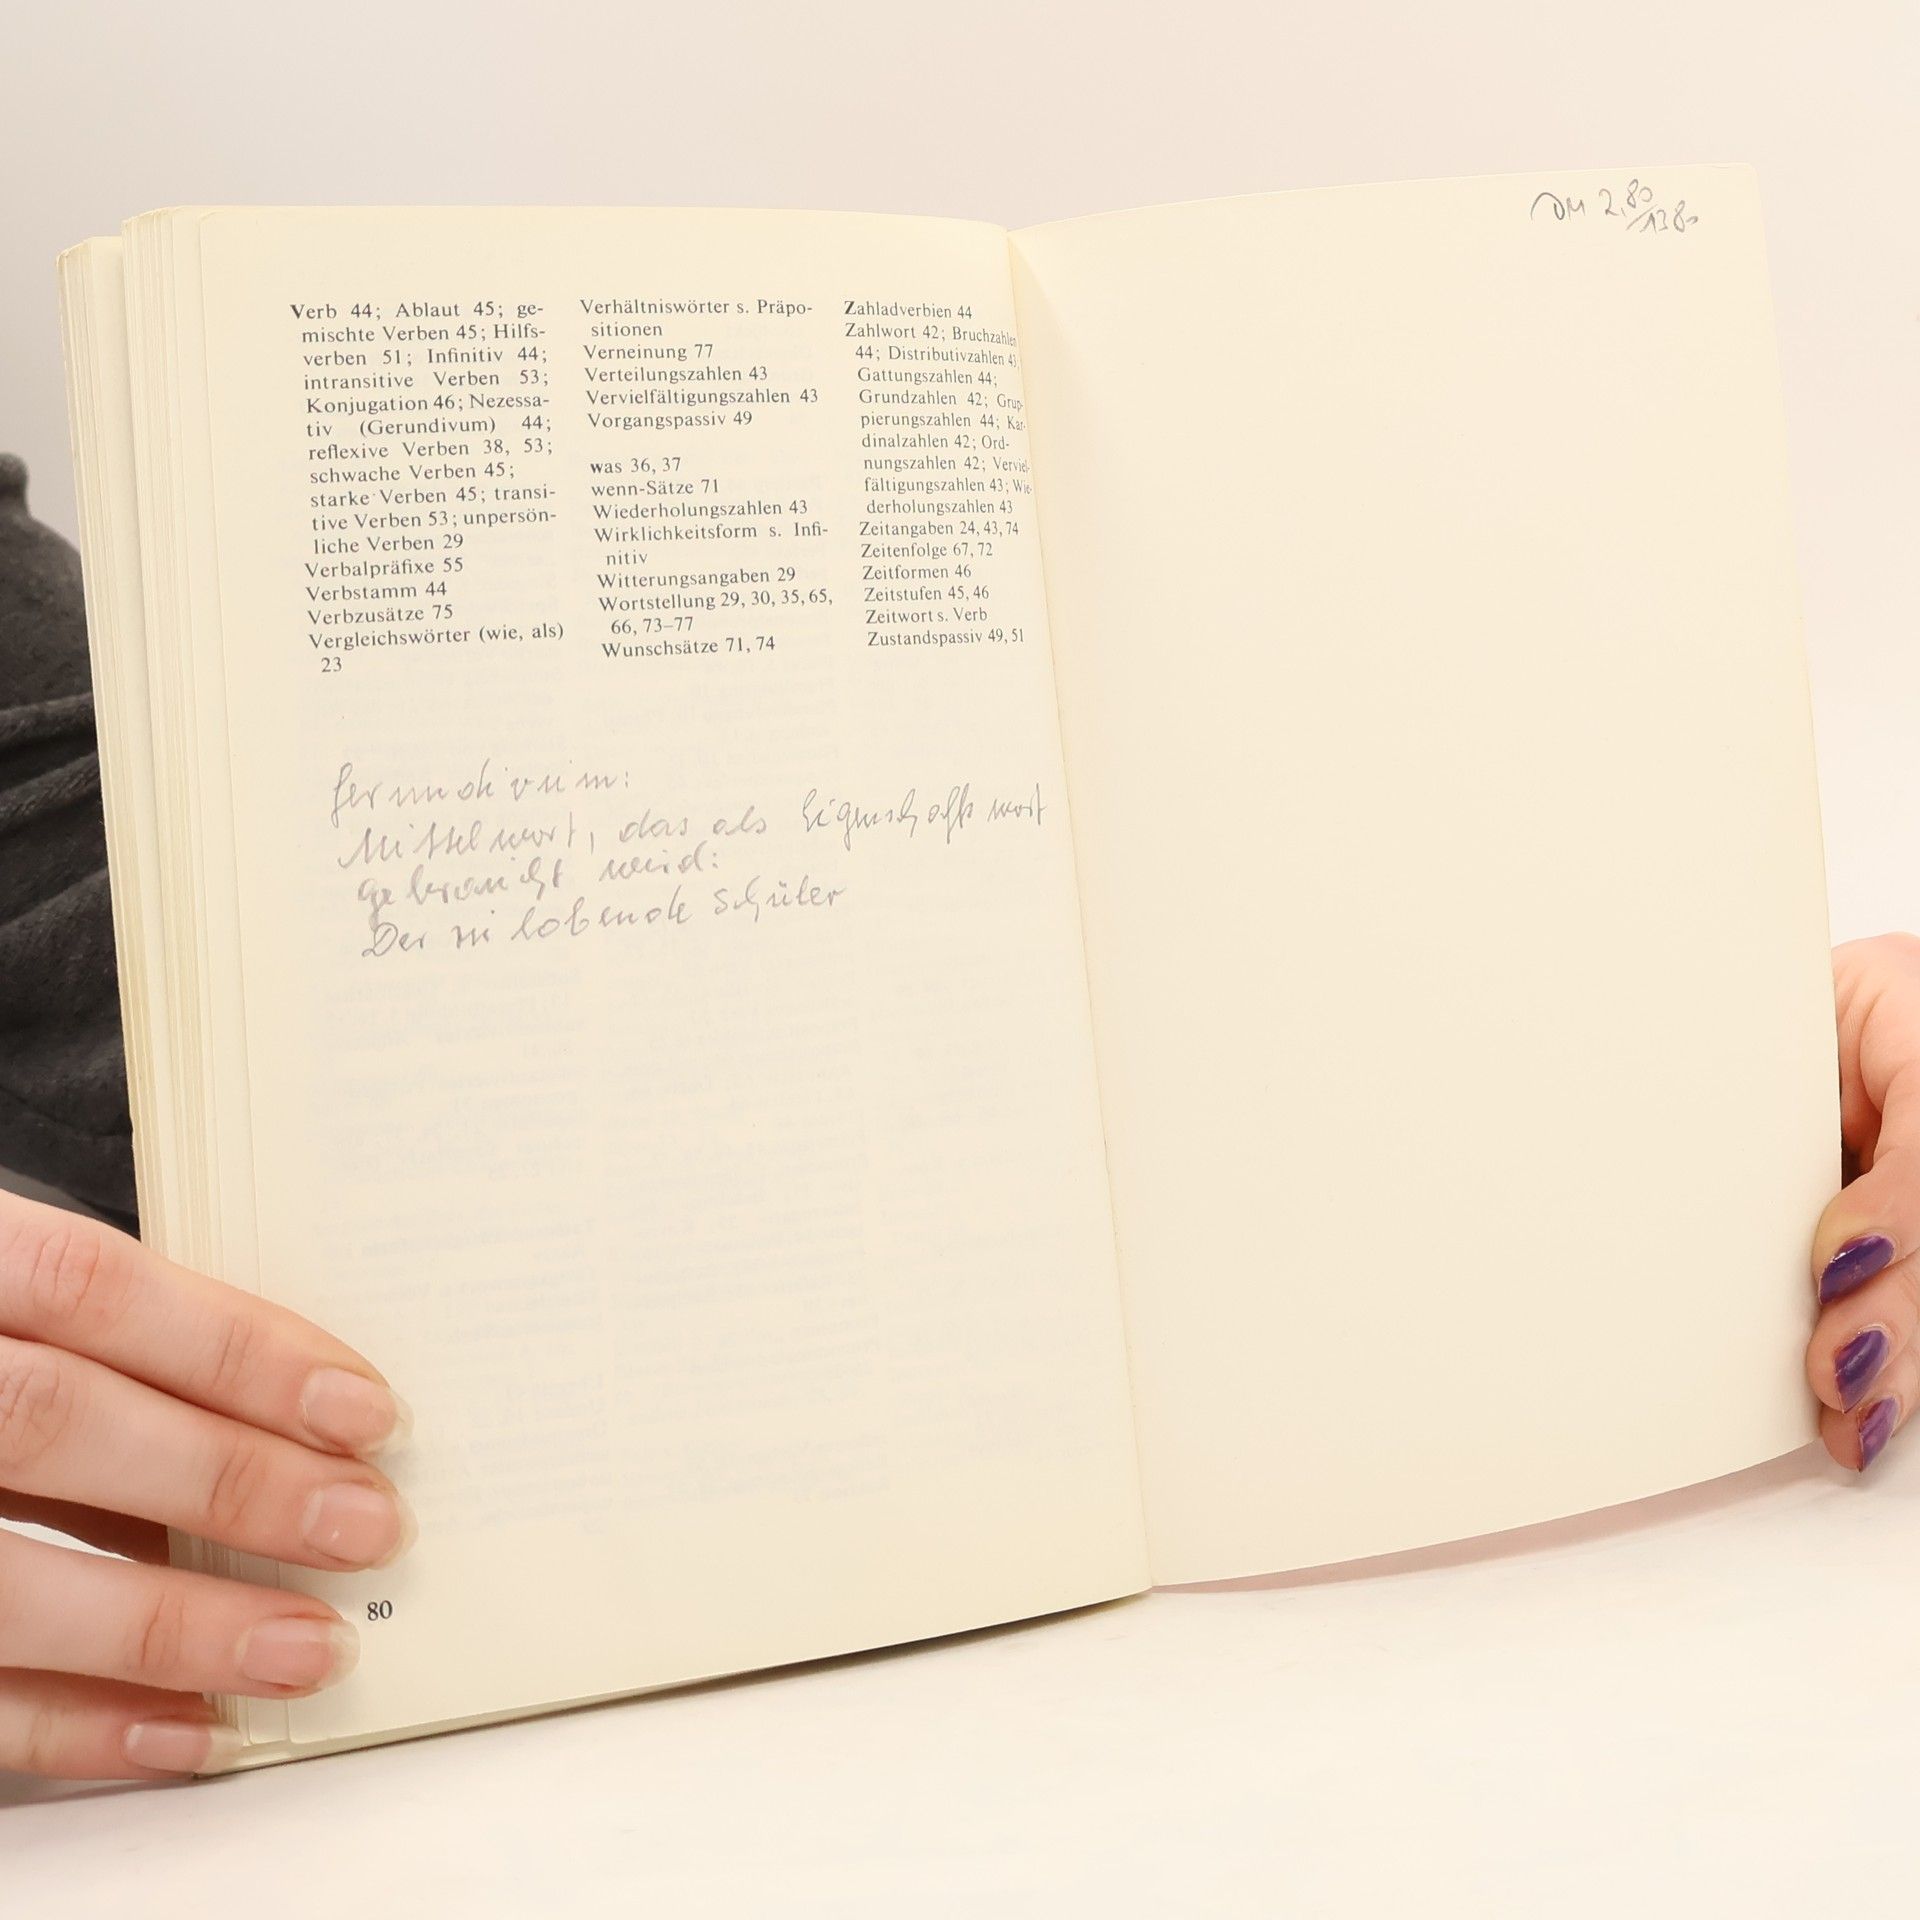 Verb 44; Ablaut 45; ge-
mischte Verben 45; Hilfs-
verben 51; Infinitiv 44;
intransitive Verben 53;
Konjugation 46; Nezessa-
tiv (Gerundivum) 44;
reflexive Verben 38, 53;
schwache Verben 45;
starke Verben 45; transi-
tive Verben 53; unpersön-
liche Verben 29
Verbalpräfixe 55
Verbstamm 44
Verbzusätze 75
Vergleichswörter (wie, als)
23
Verhältniswörter s. Präpo-
sitionen
Verneinung 77
Verteilungszahlen 43
Vervielfältigungszahlen 43
Vorgangspassiv 49
was 36, 37
wenn-Sätze 71
Wiederholungszahlen 43
Wirklichkeitsform s. Infi-
nitiv
Witterungsangaben 29
Wortstellung 29, 30, 35, 65,
66, 73–77
Wunschsätze 71, 74
Zahladverbien 44
Zahlwort 42; Bruchzahlen
44; Distributivzahlen 43;
Gattungszahlen 44;
Grundzahlen 42; Grup-
pierungszahlen 44; Kar-
dinalzahlen 42; Ord-
nungszahlen 42; Verviel-
fältigungszahlen 43; Wie-
derholungszahlen 43
Zeitangaben 24, 43, 74
Zeitenfolge 67, 72
Zeitformen 46
Zeitstufen 45, 46
Zeitwort s. Verb
Zustandspassiv 49, 51
Gerundivum:
Mittelwort, das als Eigenschaftswort
gebraucht wird:
Der zu lobende Schüler
80
DM 2,80
1380